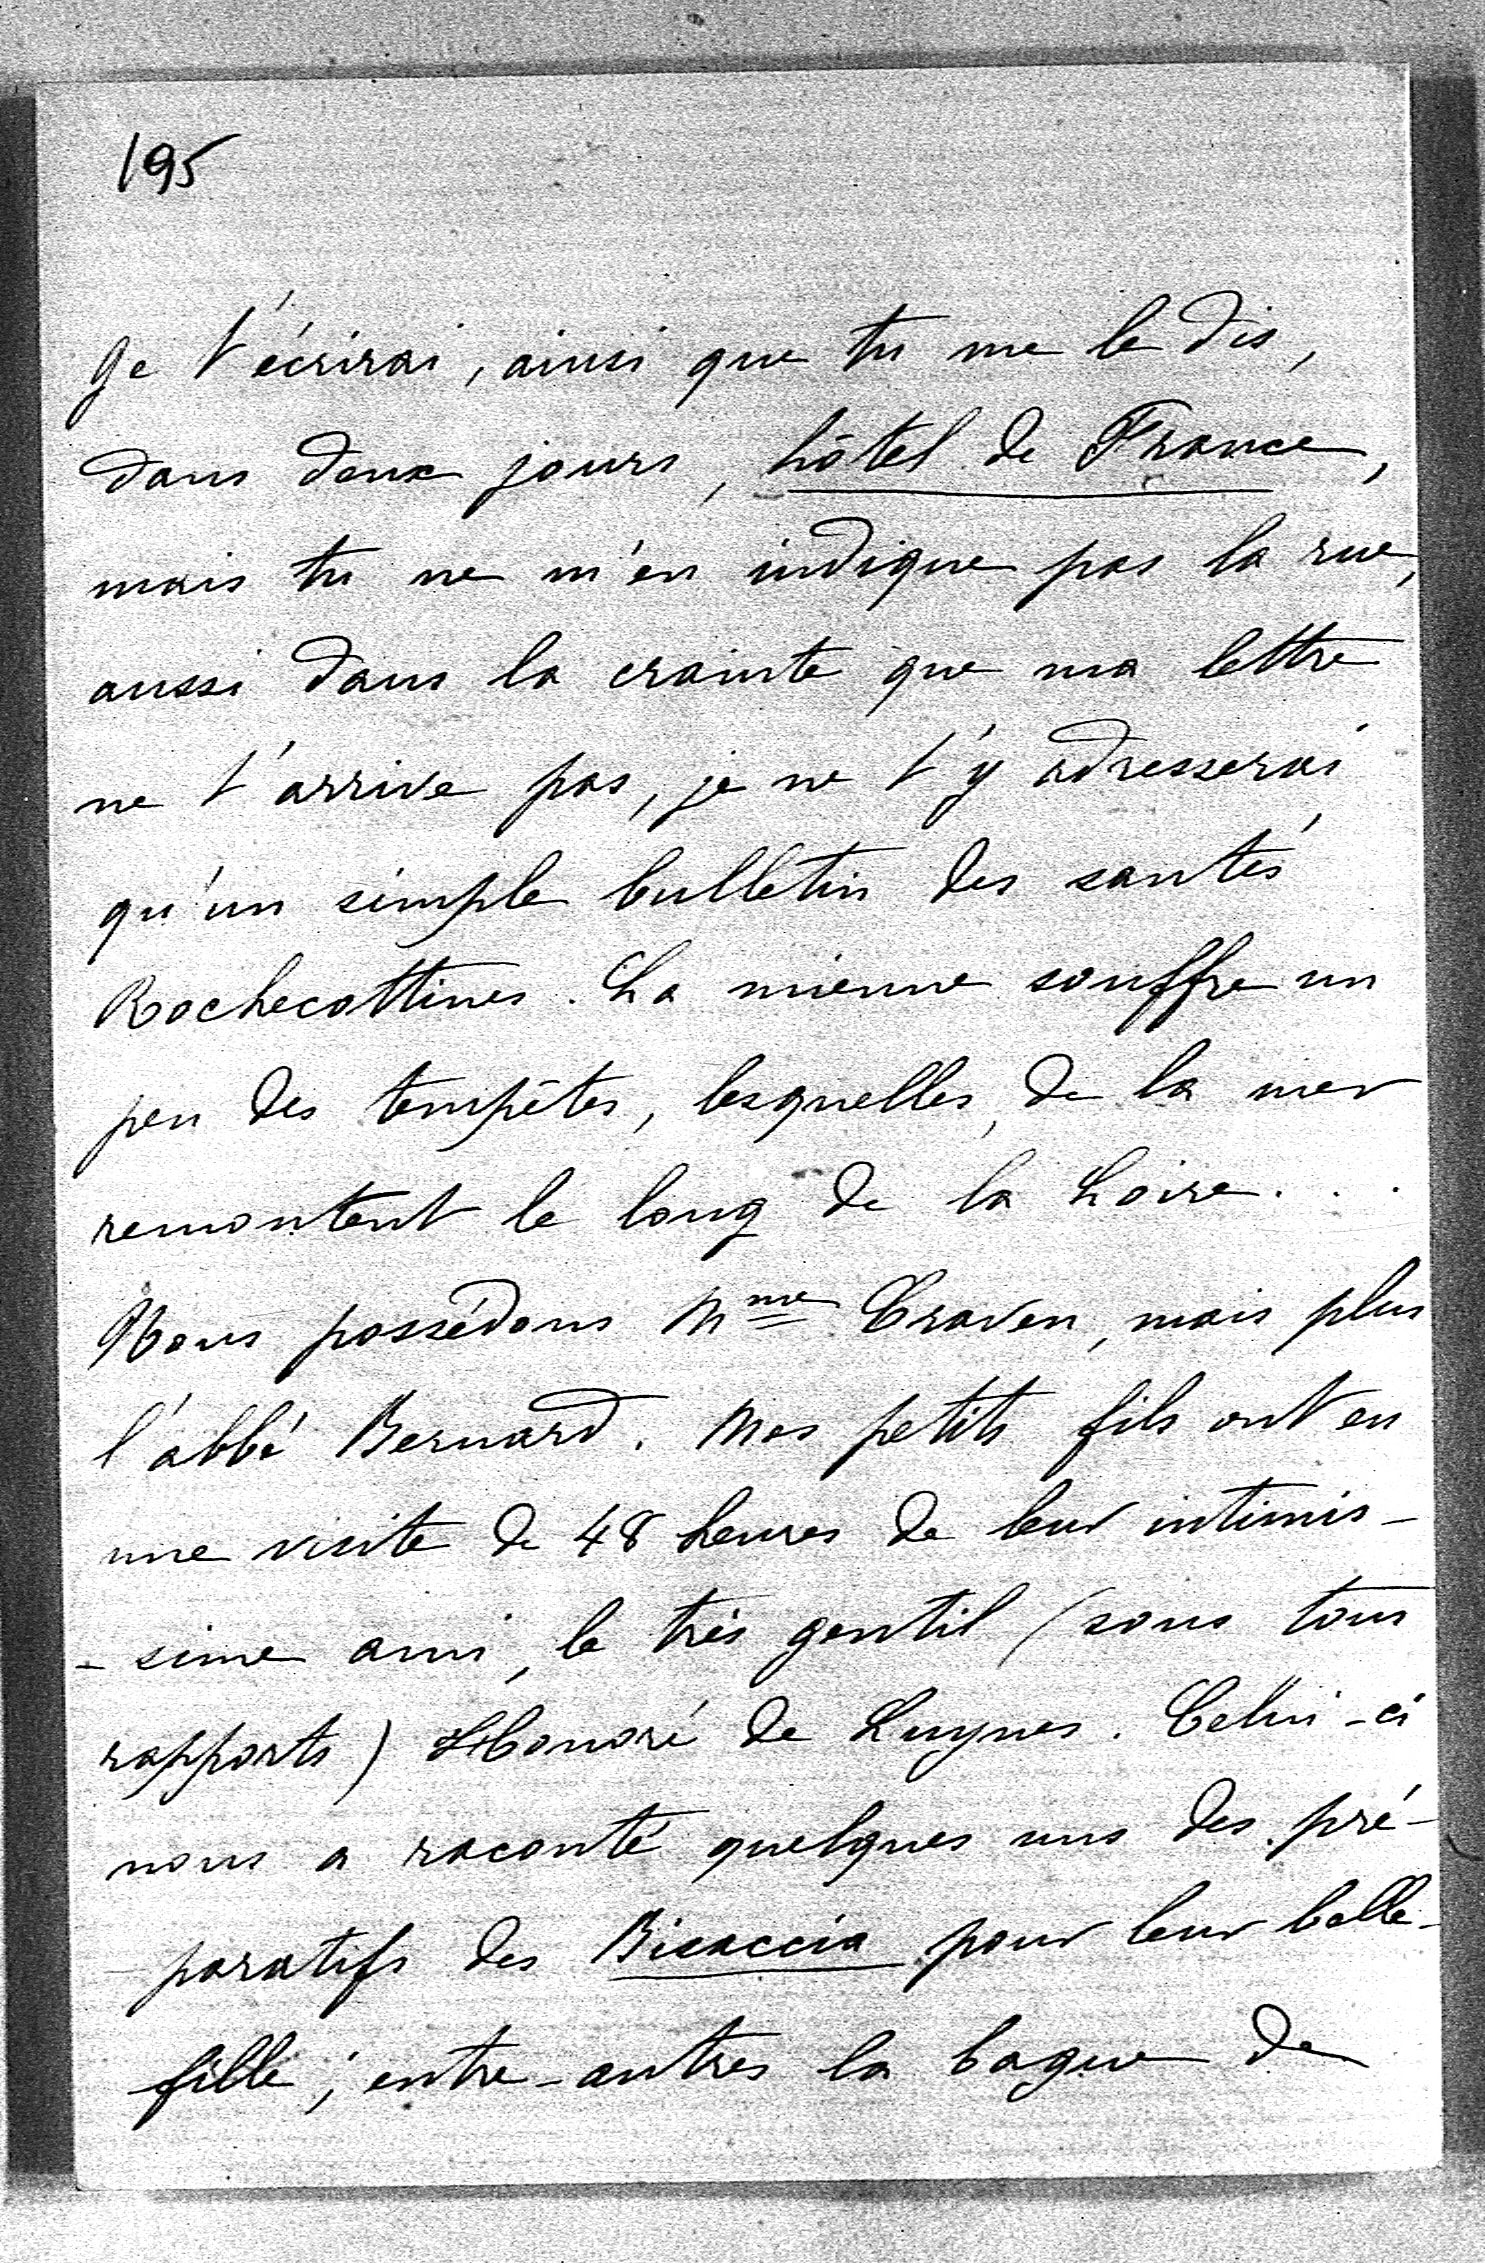 195
Je t'écrirai, ainsi que tu me le dis,
dans deux jours, hôtel de France,
mais tu ne m'en indique pas la rue,
aussi dans la crainte que ma lettre
ne t'arrive pas, je ne t'y adresserai
qu'un simple bulletin des santés
Rochecottines. La mienne souffre un
peu des tempêtes, lesquelles, de la mer
remontent le long de la Loire...
Nous possédons Mme Craven, mais plus
l'abbé Bernard. Mes petits fils ont eu
une visite de 48 heures de leur intimis-
-sime ami, le très gentil (sous tous
rapports) Honoré de Luynes. Celui-ci
nous a raconté quelques uns des pré-
paratifs des Bisaccia pour leur belle-
fille; entre-autres la bague de